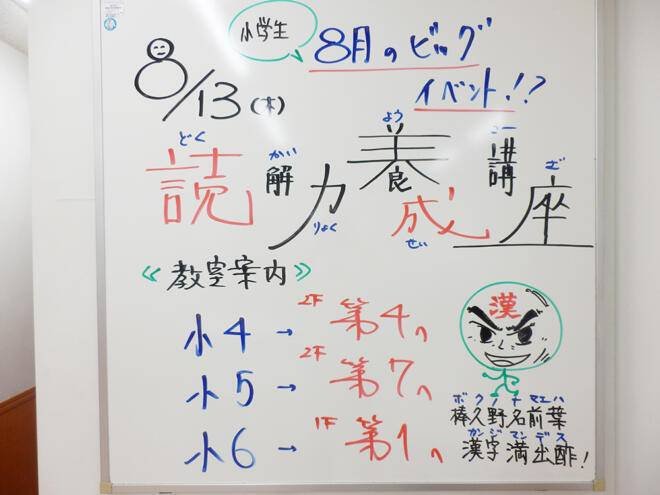 小学生
8月のビッグ
イベント!?
8/13(木)
どく かい りょく よう せい こー ざ
読解力養成講座
《教室案内》
小4→2F第4へ
小5→2F第7へ
小6→1F第1へ
漢
ボクノナマエハ
棒久野名前葉
カンジマンデス
漢字満出酢!